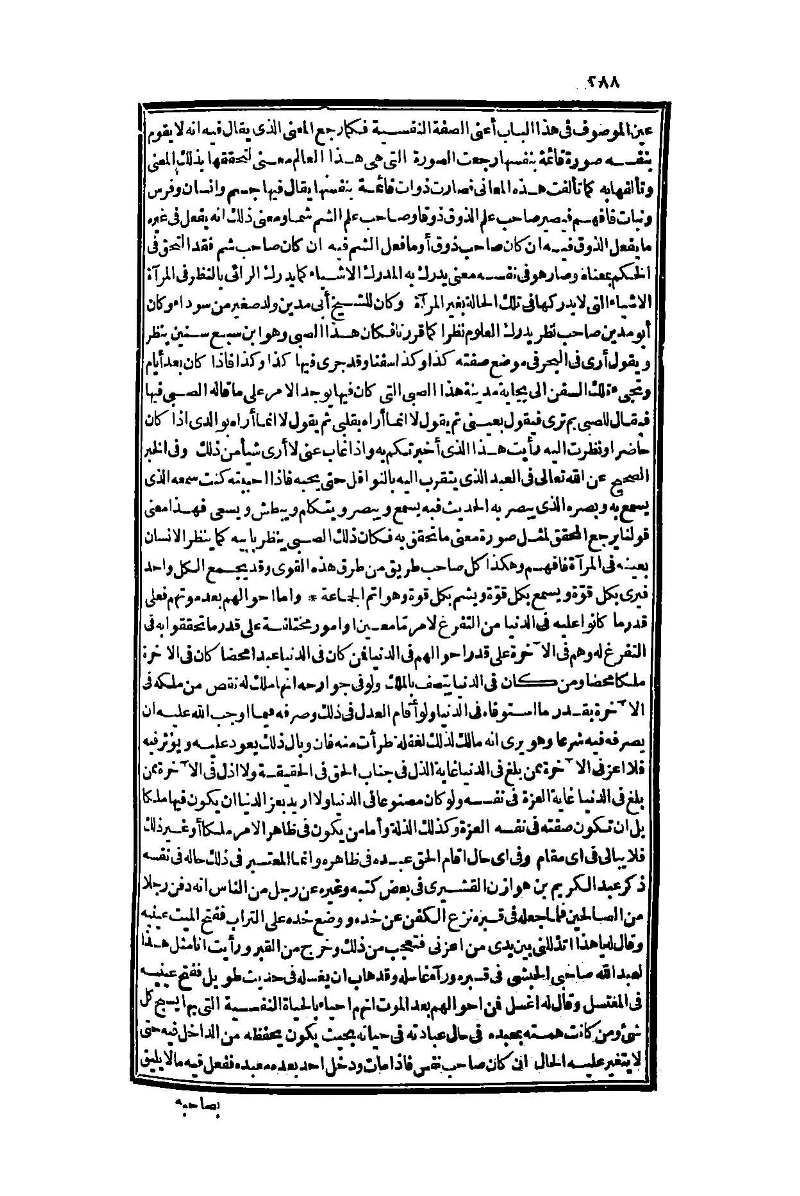 ٢٨٨
عين الموصوف فى هذا الباب أعنى الصفة النفسية فكما رجع المعنى الذى يقال فيه انه لا يقوم
بنفسه صورة قائمة بنفسها رجعت الصورة التى هى هذا العالم معنى لتحققها بذلك المعنى
وتألفها به كما تألفت هذه المعانى فصارت ذوات قائمة بنفسها يقال فيها جسم وانسان وفرس
ونبات فافهم فيصير صاحب علم الذوق ذوقا وصاحب علم الشم شما ومعنى ذلك انه يفعل فى غيره
ما يفعل الذوق فيه ان كان صاحب ذوق أو ما فعل الشم فيه ان كان صاحب شم فقد التحق فى
الحكم بمعناه وصار هو فى نفسه معنى يدرك به المدرك الاشياء كما يدرك الرائى بالنظر فى المرآة
الاشياء التى لا يدركها فى تلك الحالة بغير المرآة وكان للشيخ أبى مدين ولد صغير من سوداء وكان
أبو مدين صاحب نظر يدرك العلوم نظرا كما قررنا فكان هذا الصبى وهو ابن سبع سنين ينظر
ويقول أرى فى البحر فى موضع صفته كذا وكذا سفنا وقد جرى فيها كذا وكذا فاذا كان بعد أيام
وتجىء تلك السفن الى بجاية مدينة هذا الصبى التى كان فيها يوجد الامر على ما قاله الصبى فيها
فيقال للصبى بم ترى فيقول بعينى ثم يقول لا انما أراه بقلبى ثم يقول لا انما أراه بوالدى اذا كان
حاضرا ونظرت اليه رأيت هذا الذى أخبرتكم به واذا غاب عنى لا أرى شيأ من ذلك وفى الخبر
الصحيح عن الله تعالى فى العبد الذى يتقرب اليه بالنوافل حتى يحبه فاذا احببته كنت سمعه الذى
يسمع به وبصره الذى يبصر به الحديث فبه يسمع ويبصر ويتكلم ويبطش ويسعى فهذا معنى
قولنا يرجع المحقق لمثل صورة معنى ما تحقق به فكان ذلك الصبى ينظر بابيه كما ينظر الانسان
بعينه فى المرآة فافهم وهكذا كل صاحب طريق من طرق هذه القوى وقد يجمع الكل واحد
فيرى بكل قوة ويسمع بكل قوة ويشم بكل قوة وهو اتم الجماعة * واما احوالهم بعد موتهم فعلى
قدر ما كانوا عليه فى الدنيا من التفرغ لامر ما معين او امور مختلفة على قدر ما تحققوا به فى
التفرغ له وهم فى الآخرة على قدر احوالهم فى الدنيا فمن كان فى الدنيا عبدا محضا كان فى الآخرة
ملكا محضا ومن كان فى الدنيا يتصف بالملك ولو فى جوارحه انها ملك له نقص من ملكه فى
الآخرة بقدر ما استوفاه فى الدنيا ولو أقام العدل فى ذلك وصرفه فيما اوجب الله عليه ان
يصرفه فيه شرعا وهو يرى انه مالك لذلك لغفلة طرأت منه فان وبال ذلك يعود عليه ويؤثر فيه
فلا اعز فى الآخرة ممن بلغ فى الدنيا غاية الذل فى جناب الحق فى الحقيقة ولا اذل فى الآخرة ممن
بلغ فى الدنيا غاية العزة فى نفسه ولو كان مصفوعا فى الدنيا ولا اريد بعز الدنيا ان يكون فيها ملكا
بل ان تكون صفته فى نفسه العزة وكذلك الذلة وأما من يكون فى ظاهر الامر ملكا أو غير ذلك
فلا يبالى فى اى مقام وفى اى حال اقام الحق عبده فى ظاهره وانما المعتبر فى ذلك حاله فى نفسه
ذكر عبد الكريم بن هوازن القشيرى فى بعض كتبه وغيره عن رجل من الناس انه دفن رجلا
من الصالحين فلما جعله فى قبره نزع الكفن عن خده ووضع خده على التراب ففتح الميت عينيه
وقال له يا هذا اتذللنى بين يدى من اعزنى فتعجب من ذلك وخرج من القبر ورأيت انا مثل هذا
لعبد الله صاحبى الحبشى فى قبره ورآه غاسله وقد هاب ان يغسله فى حديث طويل ففتح عينيه
فى المغتسل وقال له اغسل فمن احوالهم بعد الموت انهم احياء بالحياة النفسية التى بها يسبح كل
شئ ومن كانت همته بمعبده فى حال عبادته فى حياته بحيث يكون يحفظه من الداخل فيه حتى
لا يتغير عليه الحال ان كان صاحب نفس فاذا مات ودخل احد بعده معبده ففعل فيه ما لا يليق
بصاحبه